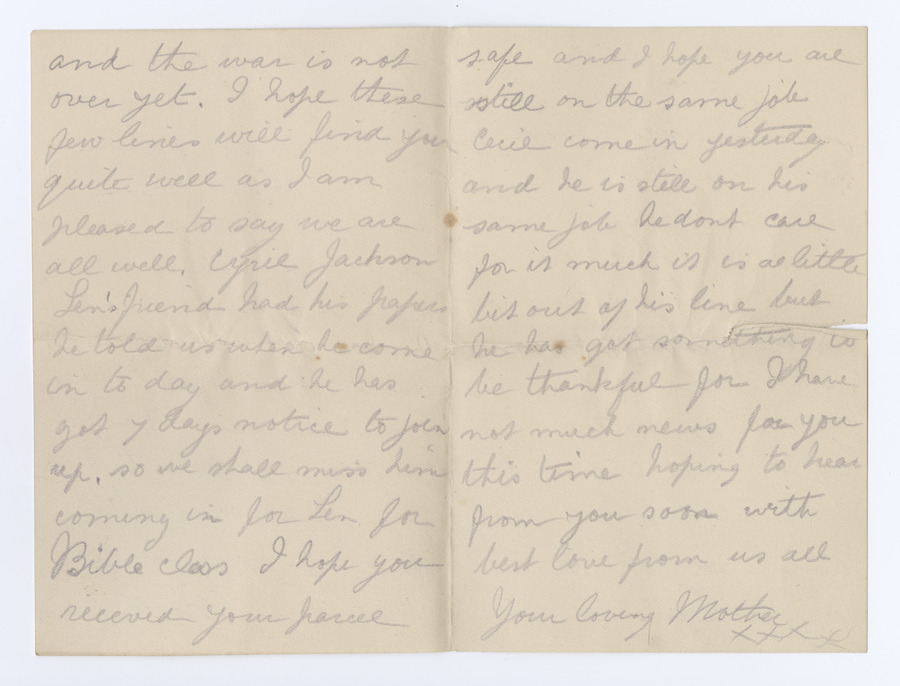 and the war is not
over yet. I hope these
few lines will find you
quite well as I am
pleased to say we are
all well. Cyril Jackson
Len's friend had his papers
he told us when he come
in to day and he has
got 7 days notice to join
up. so we shall miss him
coming in for Len for
Bible class I hope you
recieved your parcel
safe and I hope you are
still on the same job
Cecil come in yesterday
and he is still on his
same job he dont care
for it much it is a little
bit out of his line but
he has got something to
be thankful for I have
not much news for you
this time hoping to hear
from you soon with
best love from us all
Your loving Mother
xxxx